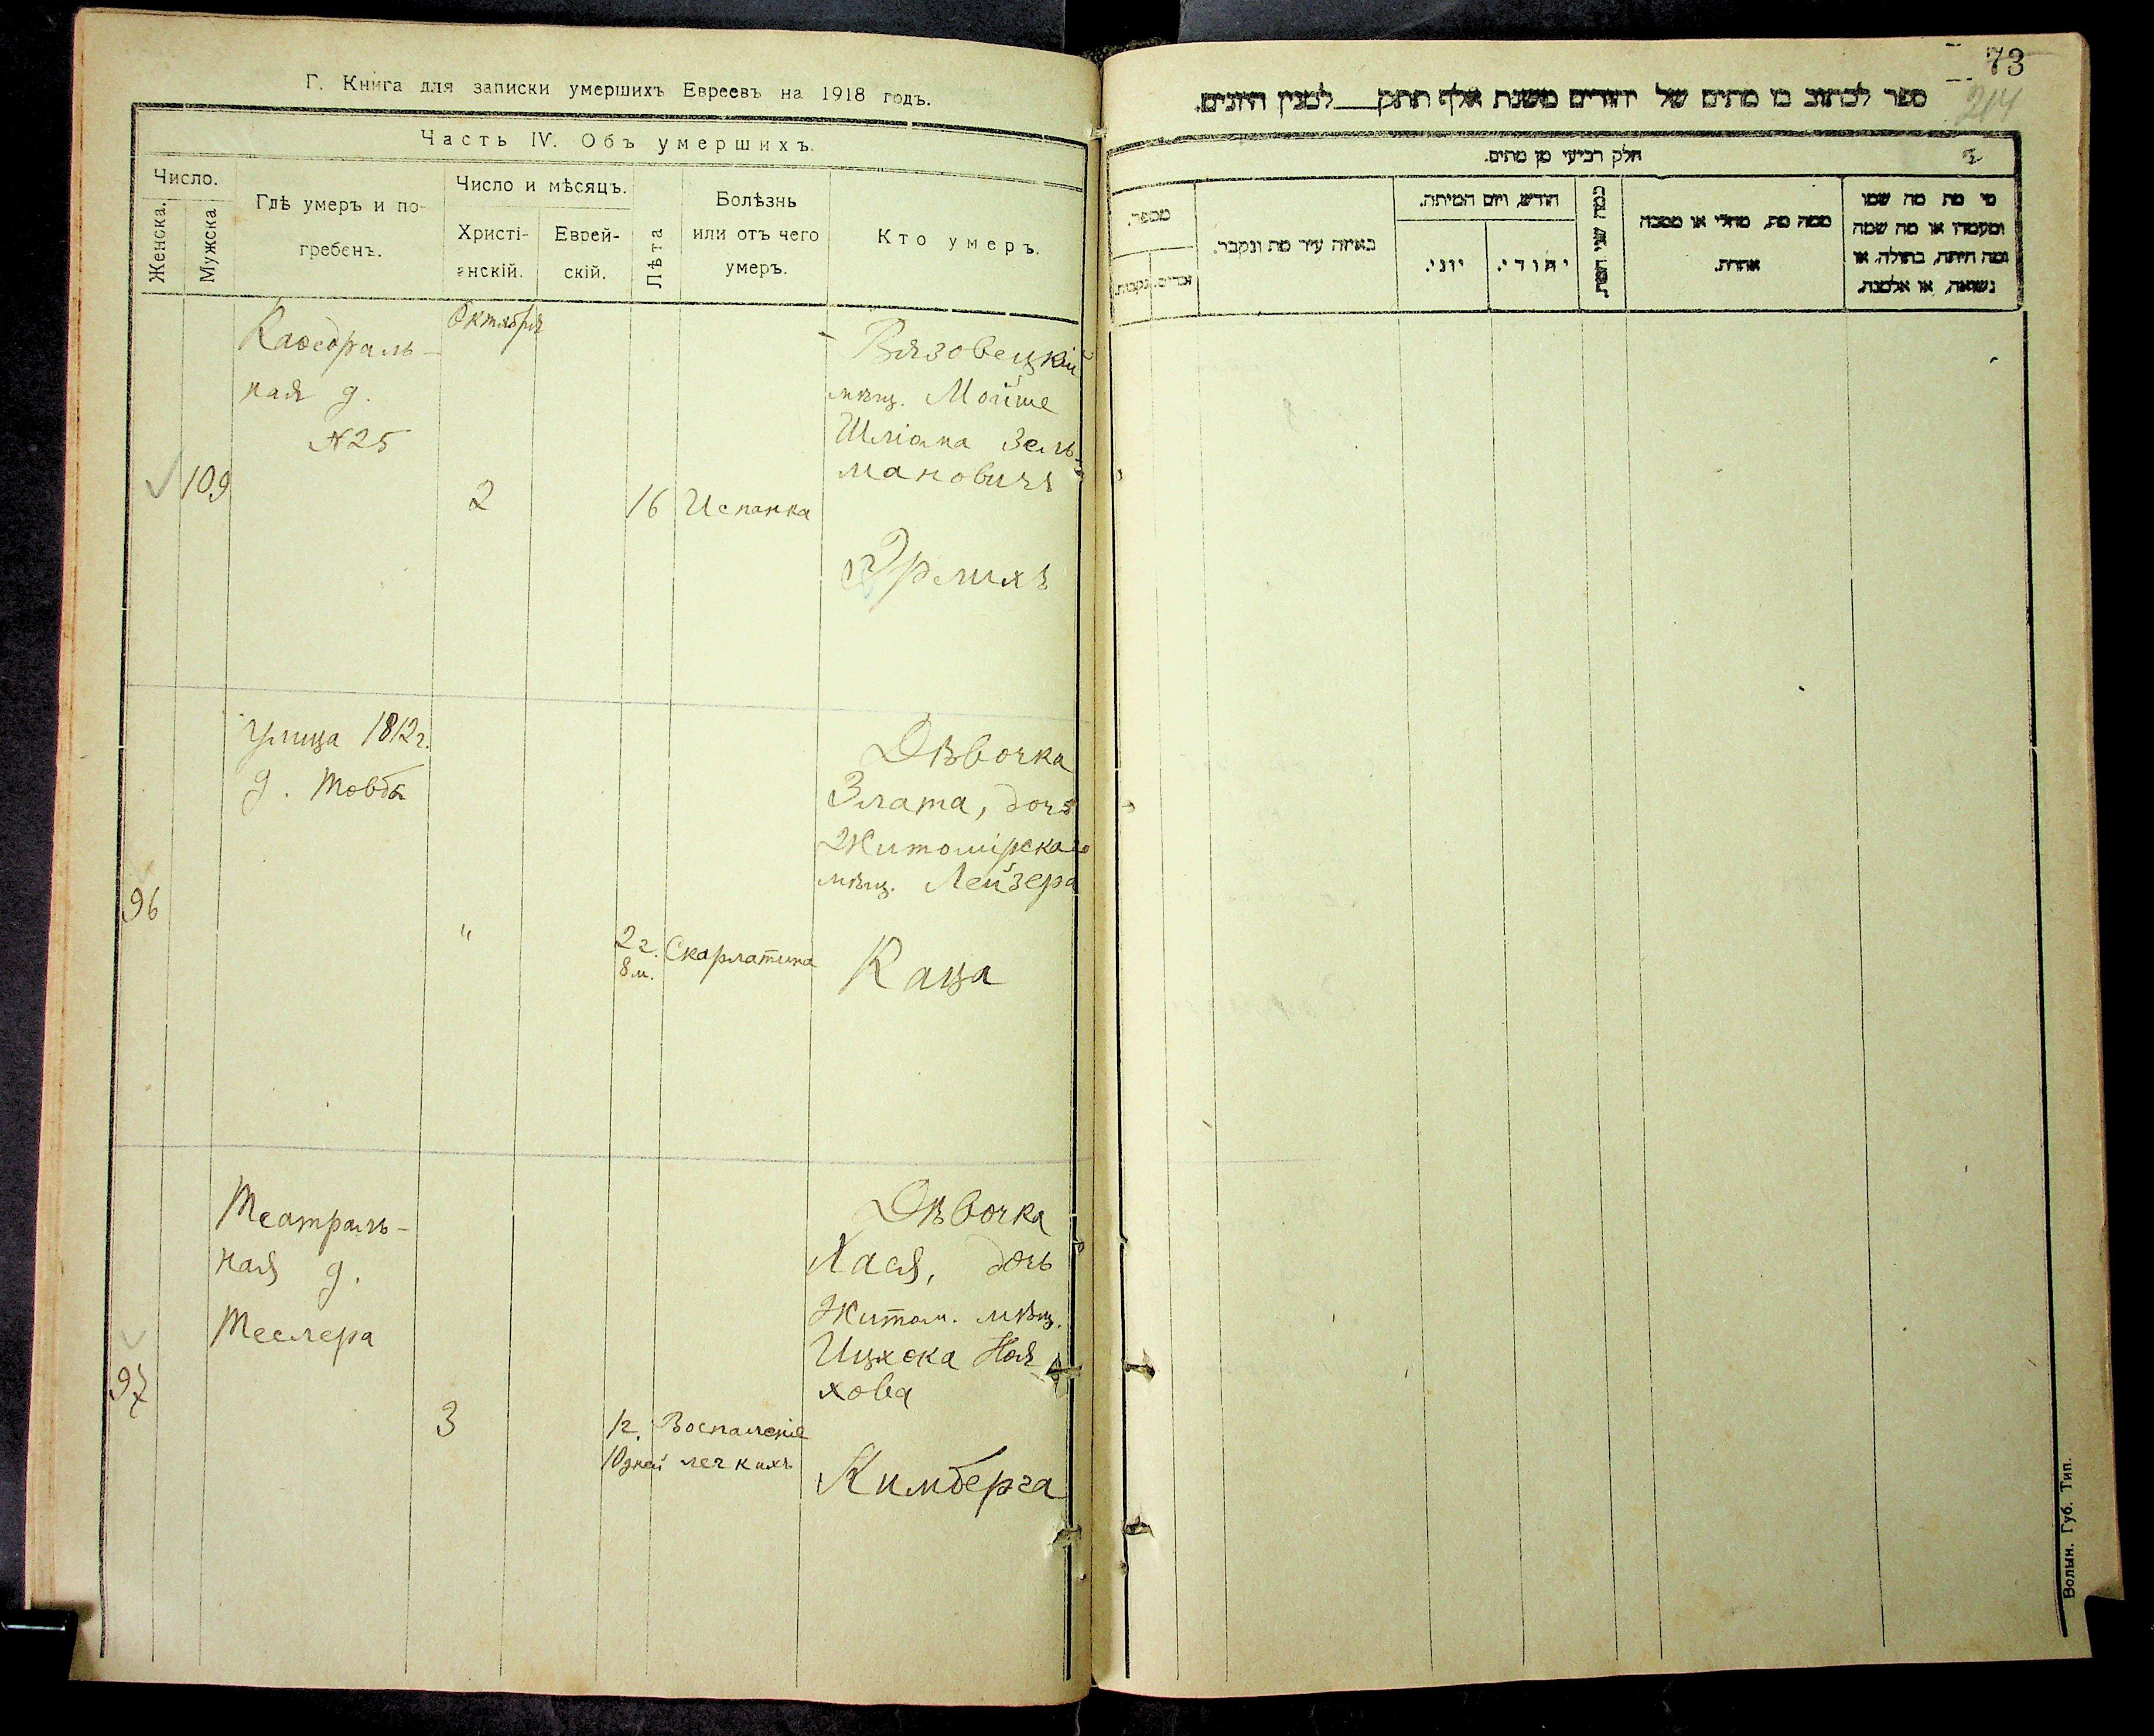 Г. Книга для записки умершихъ Евреевъ на 1918 годъ.
Часть IV. Объ умершихъ.
Число.
Женска.
Мужска
Гдѣ умеръ и по-
гребенъ.
Число и мѣсяцъ.
Христі-
анскій.
Еврей-
скій.
Лѣта
Болѣзнь
или отъ чего
умеръ.
Кто умеръ.
109
Каѳедраль-
ная д.
№25
Октября
2
16
Испанка
Вязовецкій
мѣщ. Мойше
Шліома Зель-
мановичъ
Эрлихъ
96
Улица 1812 г.
д.
"
2 г.
8 м.
Скарлатина
Дѣвочка
Злата, дочь
Житомірскаго
мѣщ. Лейзера
Каца
97
Театраль-
ная д.
Теслера
3
1 г.
10 дней
Воспаленіе
легкихъ
Дѣвочка
Хася, дочь
Житом. мѣщ.
Ицхока Ная
хова
Кимберга
73
214
ספר לכתוב בו מתים של יהודים משנת אלף תתק___למנין היונים.
חלק רביעי מן מתים.
מספר.
נקבות.
זכרים.
באיזה עיר מת ונקבר.
חודש, ויום המיתה.
יוני.
יהודי.
כמה שני המת.
ממה מת, מחלי או מסבה
אחרת.
מי מת מה שמו
ומעמדו או מה שמה
ומה היתה, בתולה, או
נשואה, או אלמנה.
Волын. Губ. Тип.